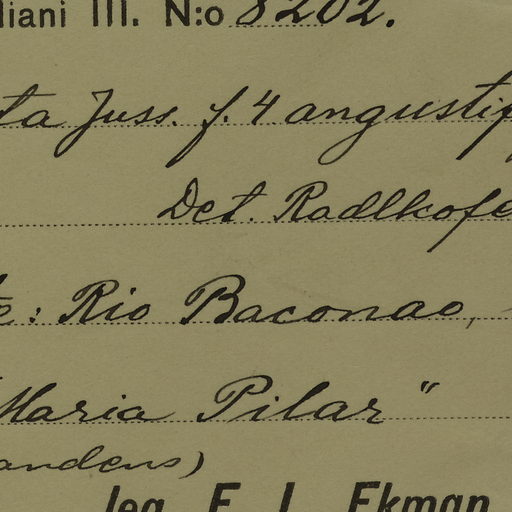 liani III. N:o 8202.
ta Juss. f. 4 angustif
Det. Radlkofe
te: Rio Baconao,
"Maria Pilar"
andens)
leg. E. L. Ekman